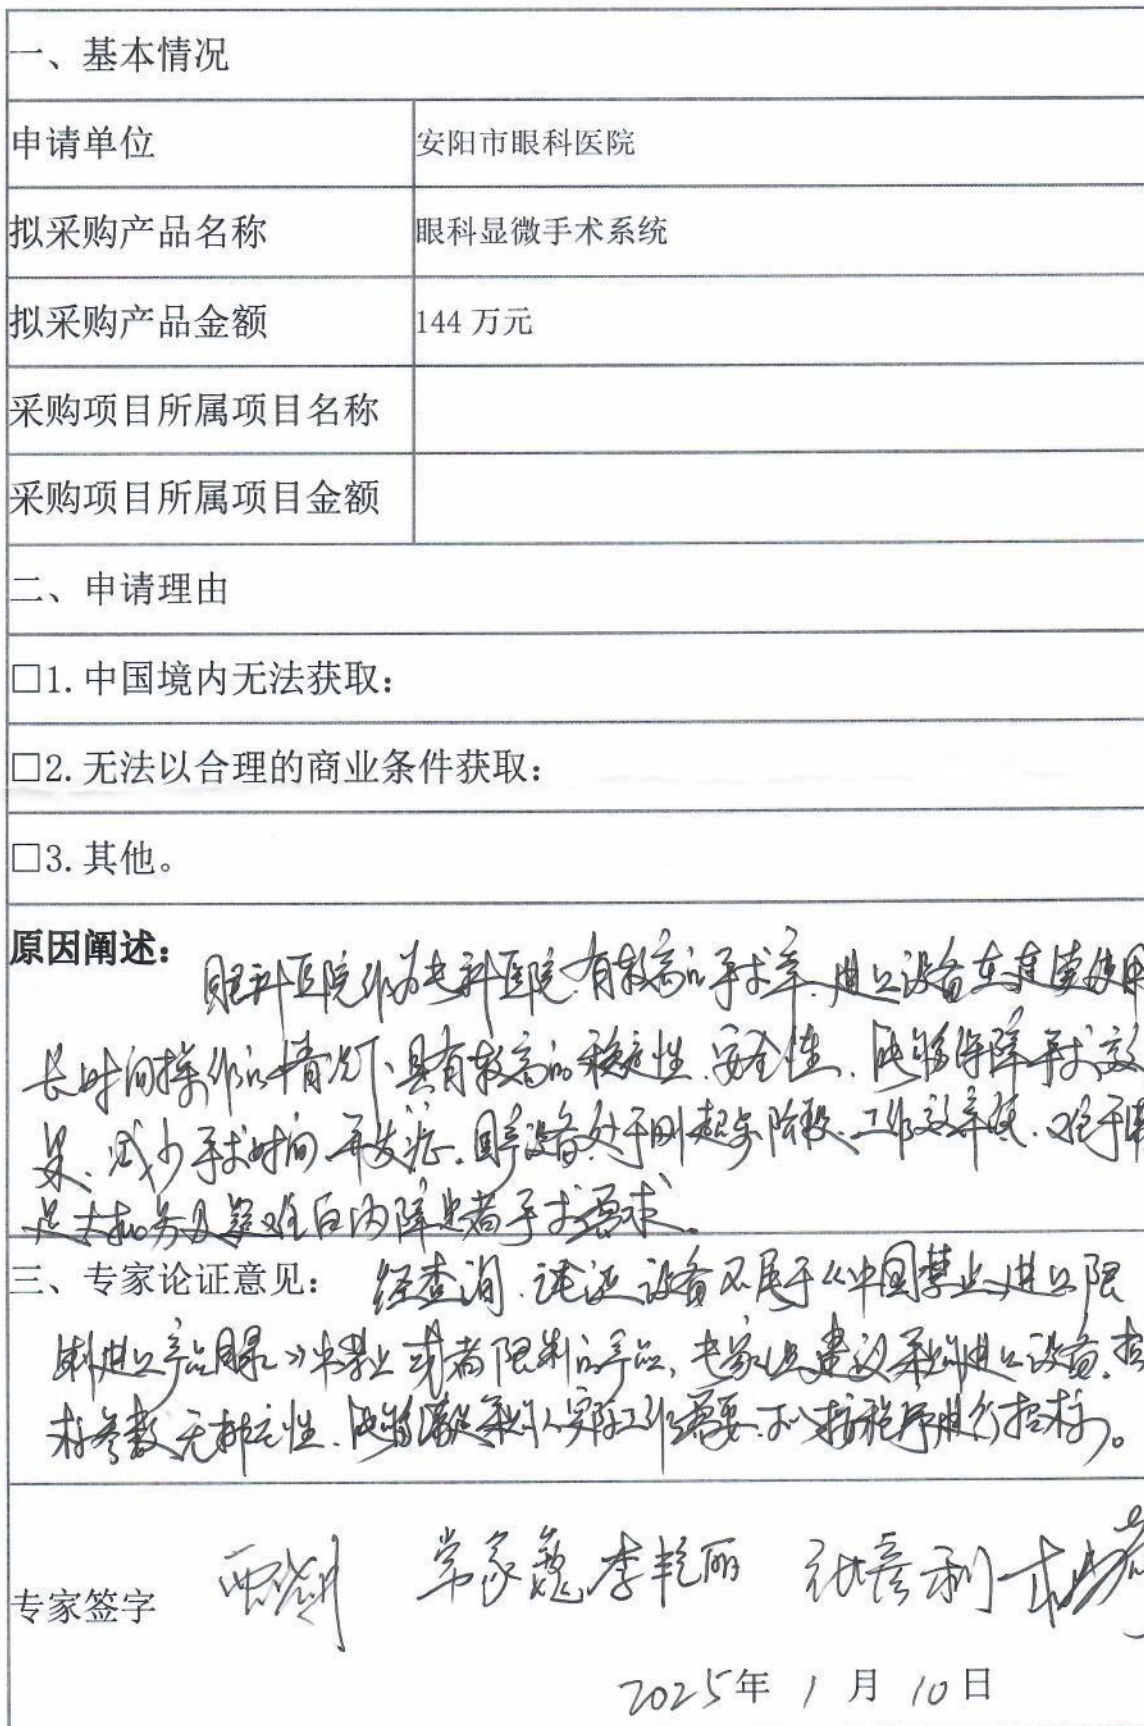 一、基本情况
申请单位 安阳市眼科医院
拟采购产品名称 眼科显微手术系统
拟采购产品金额 144 万元
采购项目所属项目名称
采购项目所属项目金额
二、申请理由
□1.中国境内无法获取：
□2.无法以合理的商业条件获取：
□3.其他。
原因阐述：
眼科医院作为专科医院,有较高的手术率.进口设备在连续使用
长时间操作的情况下,具有较高的稳定性.安全性.能够保障手术效
果.减少手术时间.并发症.国产设备处于刚起步阶段.工作效率低.难于满
足大批务及疑难白内障患者手术需求.
三、专家论证意见： 经查询.论证设备不属于《中国禁止进口限
制进口产品目录》中禁止或者限制的产品,专家组建议采购进口设备.指
标参数无排它性.能够满足采购人实际工作需要.可以按程序进行招标。
专家签字 李艳丽
2025年 1 月 10 日